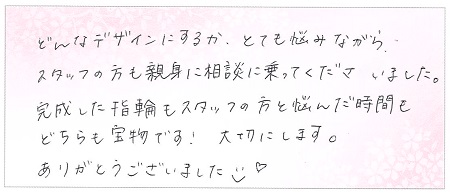 どんなデザインにするか、とても悩みながら、
スタッフの方も親身に相談に乗ってくださいました。
完成した指輪もスタッフの方と悩んだ時間も
どちらも宝物です! 大切にします。
ありがとうございました